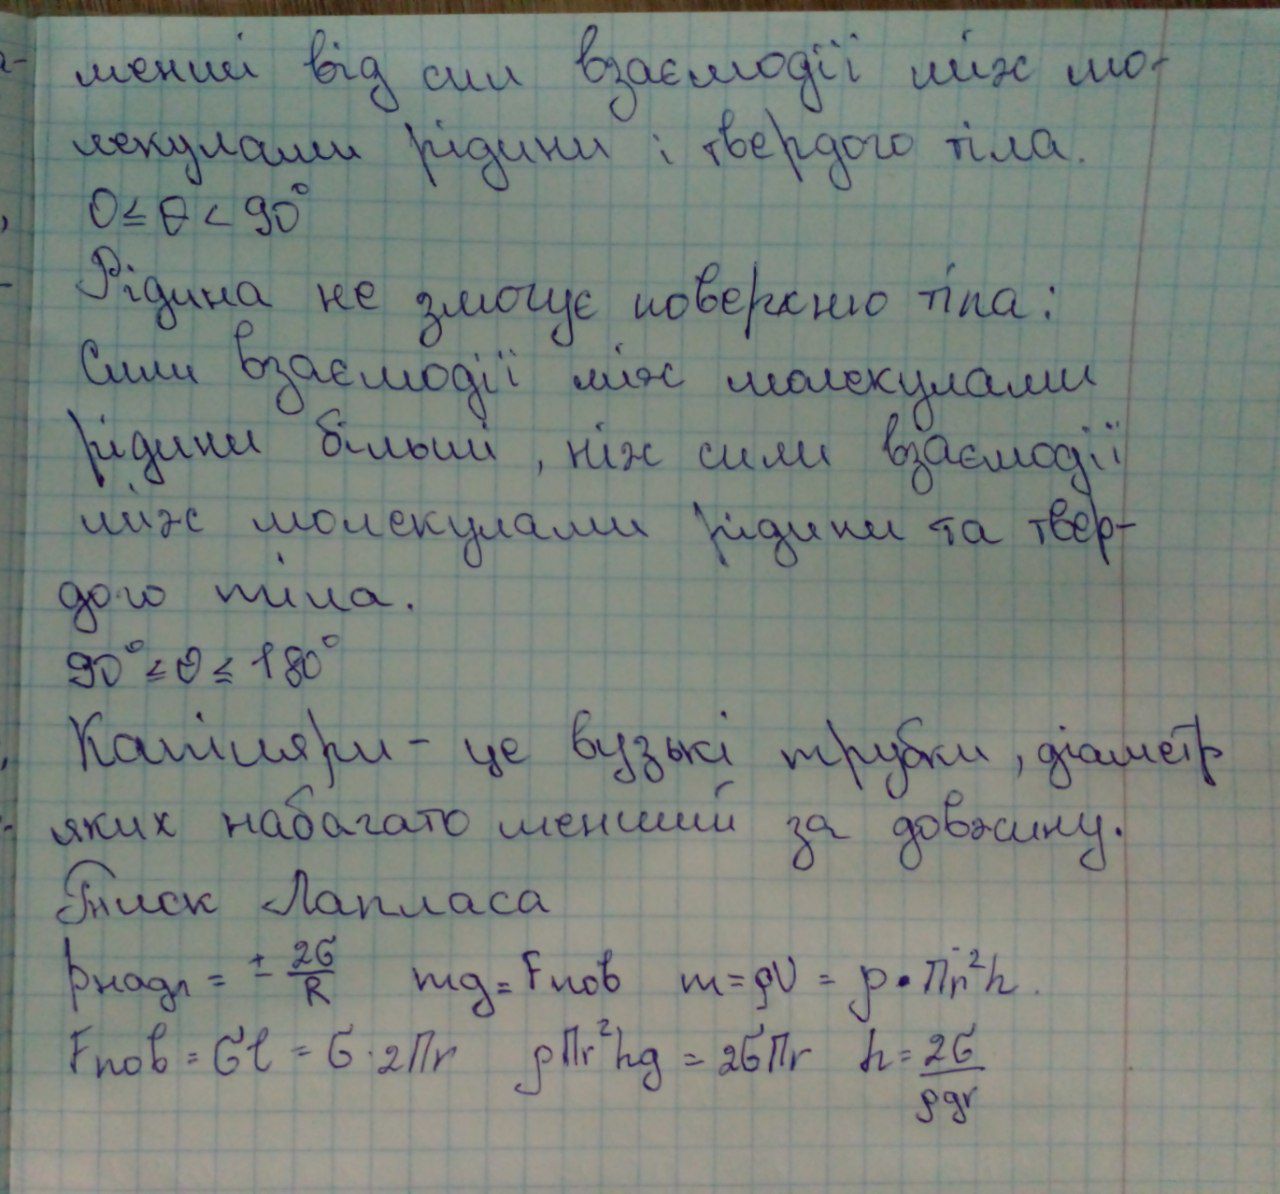 менші від сил взаємодії між мо-
лекулами рідини і твердого тіла.
0 ≤ θ < 90°
Рідина не змочує поверхню тіла:
Сили взаємодії між молекулами
рідини більші, ніж сили взаємодії
між молекулами рідини та твер-
дого тіла.
90° ≤ θ ≤ 180°
Капіляри - це вузькі трубки, діаметр
яких набагато менший за довжину.
Тиск Лапласа
pнадл = ± 2σ/R mg = Fпов m = ρV = ρ · Πr²h.
Fпов = σl = σ · 2Πr ρΠr²hg = 2σΠr h = 2σ/ρgr